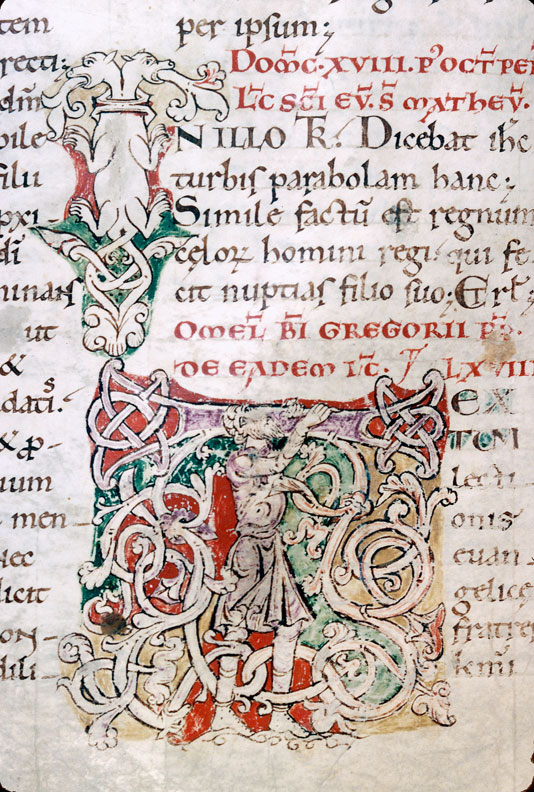 tem
recti;
dm̄
bile
filii
pxi-
di
minans
ut
&
dati.
& p-
uum
men
nec
licit
on-
dili-
per ipsum;
DOMC̄. XVIII. P' OCT̄ PEN
LC̄ SCI EV̄. S̄ MATHEV̄.
INILLO T̄R̄. Dicebat ih̄c
turbis parabolam hanc;
Simile factū est regnum
celoꝝ homini regi. qui fe
cit nuptias filio suo; Et rl̄.
OMEL̄ BI GREGORII PP.
DE EADEM LC̄. LXVIII
TEX
TUM
lecti
onis
euan
gelicę
fratres
kmi